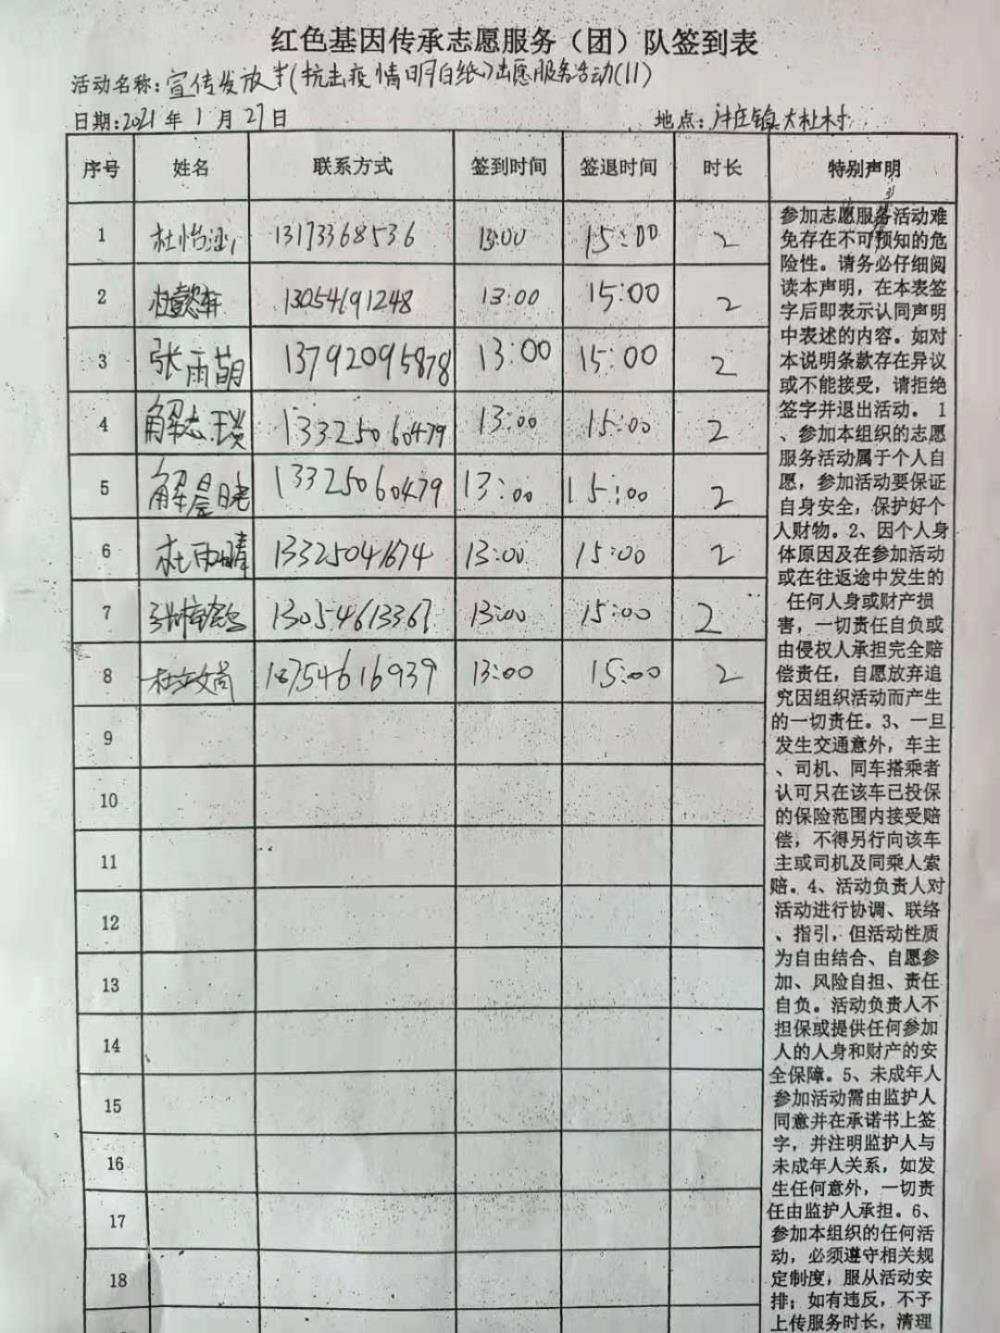 红色基因传承志愿服务（团）队签到表
活动名称：宣传发放《抗击疫情明白纸》志愿服务活动(11)
日期：2021年1月27日 地点：汫庄镇大杜村
序号 姓名 联系方式 签到时间 签退时间 时长 特别声明
1 杜怡涵 13173368536 13:00 15:00 2
2 杜懿轩 13054691248 13:00 15:00 2
3 张雨萌 13792095878 13:00 15:00 2
4 解志琰 13325060479 13:00 15:00 2
5 解晨晓 13325060479 13:00 15:00 2
6 杜雨晴 13325041674 13:00 15:00 2
7 13054613361 13:00 15:00 2
8 杜文尚 18754616939 13:00 15:00 2
9
10
11
12
13
14
15
16
17
18
参加志愿服务活动难
免存在不可预知的危
险性。请务必仔细阅
读本声明，在本表签
字后即表示认同声明
中表述的内容。如对
本说明条款存在异议
或不能接受，请拒绝
签字并退出活动。1
、参加本组织的志愿
服务活动属于个人自
愿，参加活动要保证
自身安全，保护好个
人财物。2、因个人身
体原因及在参加活动
或在往返途中发生的
任何人身或财产损
害，一切责任自负或
由侵权人承担完全赔
偿责任，自愿放弃追
究因组织活动而产生
的一切责任。3、一旦
发生交通意外，车主
、司机、同车搭乘者
认可只在该车已投保
的保险范围内接受赔
偿，不得另行向该车
主或司机及同乘人索
赔。4、活动负责人对
活动进行协调、联络
、指引，但活动性质
为自由结合、自愿参
加、风险自担、责任
自负。活动负责人不
担保或提供任何参加
人的人身和财产的安
全保障。5、未成年人
参加活动需由监护人
同意并在承诺书上签
字，并注明监护人与
未成年人关系，如发
生任何意外，一切责
任由监护人承担。6、
参加本组织的任何活
动，必须遵守相关规
定制度，服从活动安
排；如有违反，不予
上传服务时长，清理